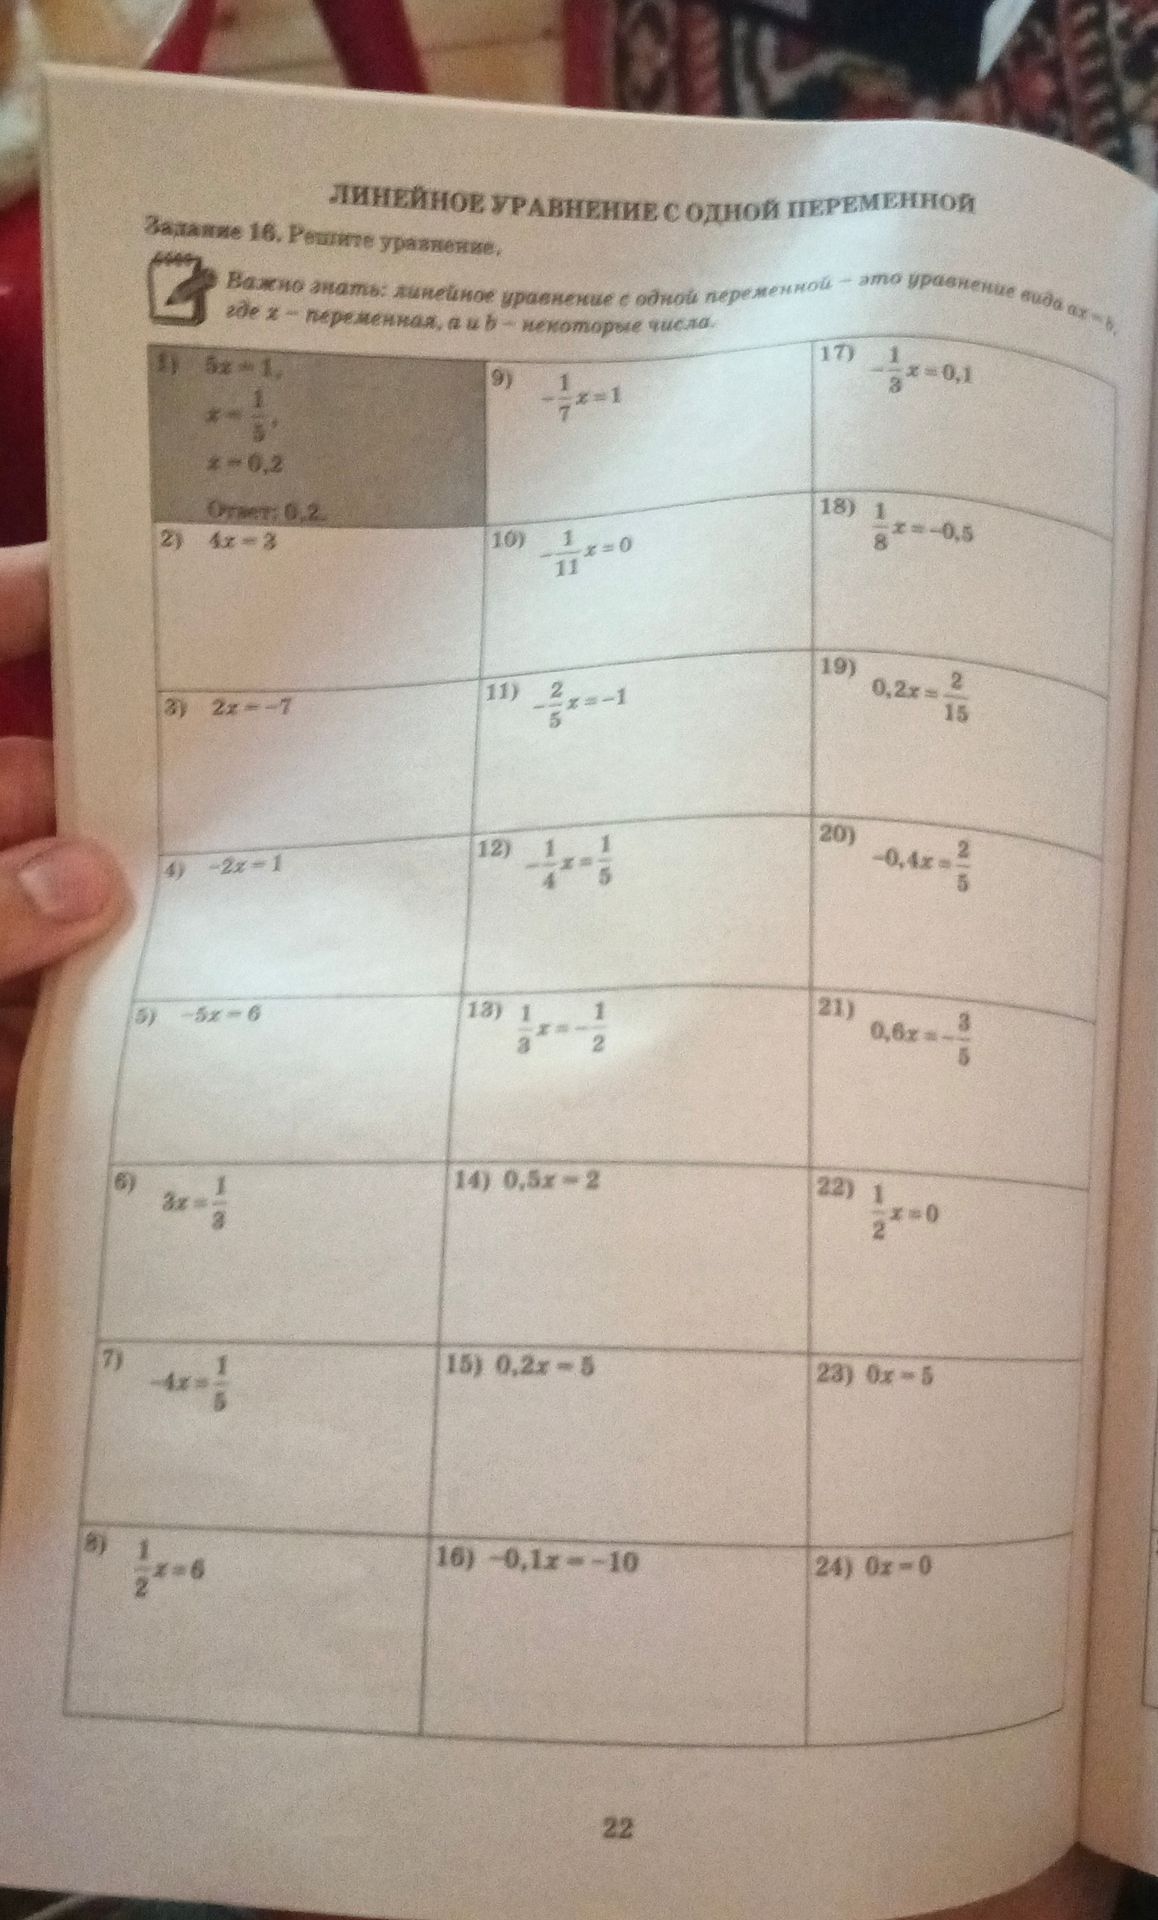 ЛИНЕЙНОЕ УРАВНЕНИЕ С ОДНОЙ ПЕРЕМЕННОЙ
Задание 16. Решите уравнение.
Важно знать: линейное уравнение с одной переменной – это уравнение вида ax = b,
где x – переменная, a и b – некоторые числа.
1) 5x = 1,
x = 1/5,
x = 0,2
Ответ: 0,2.
2) 4x = 3
3) 2x = –7
4) –2x = 1
5) –5x = 6
6) 3x = 1/3
7) –4x = 1/5
8) 1/2 x = 6
9) –1/7 x = 1
10) –1/11 x = 0
11) –2/5 x = –1
12) –1/4 x = 1/5
13) 1/3 x = –1/2
14) 0,5x = 2
15) 0,2x = 5
16) –0,1x = –10
17) –1/3 x = 0,1
18) 1/8 x = –0,5
19) 0,2x = 2/15
20) –0,4x = 2/5
21) 0,6x = –3/5
22) 1/2 x = 0
23) 0x = 5
24) 0x = 0
22